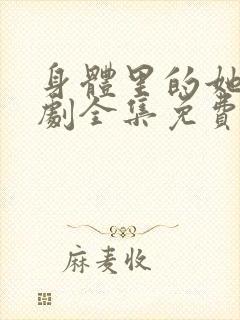 身體里的她
劇全集免費
麻麦收